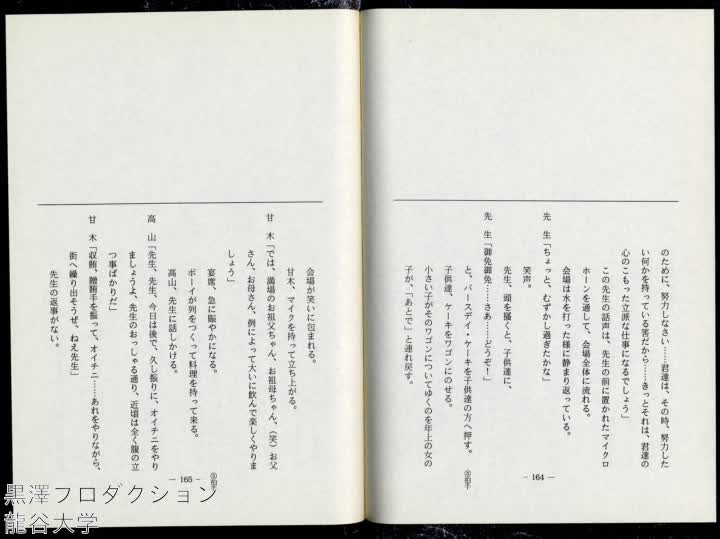 のために、努力しなさい……君達は、その時、努力した
い何かを持っている筈だから……きっとそれは、君達の
心のこもった立派な仕事になるでしょう」
この先生の話声は、先生の前に置かれたマイクロ
ホーンを通して、会場全体に流れる。
会場は水を打った様に静まり返っている。
先　生「ちょっと、むずかし過ぎたかな」
笑声。
先生、頭を掻くと、子供達に、
先　生「御免御免……さあ……どうぞ！」
と、バースデイ・ケーキを子供達の方へ押す。
子供達、ケーキをワゴンにのせる。
小さい子がそのワゴンについてゆくのを年上の女の
子が、「あとで」と連れ戻す。
－164－
会場が笑いに包まれる。
甘木、マイクを持って立ち上がる。
甘　木「では、満場のお祖父ちゃん、お祖母ちゃん、（笑）お父
さん、お母さん、例によって大いに飲んで楽しくやりま
しょう」
宴席、急に賑やかになる。
ボーイが列をつくって料理を持って来る。
高山、先生に話しかける。
高　山「先生、先生、今日は後で、久し振りに、オイチニをやり
ましょうよ、先生のおっしゃる通り、近頃は全く腹の立
つ事ばかりだ」
甘　木「収賄、贈賄手を振って、オイチニ……あれをやりながら、
街へ繰り出そうぜ、ねえ先生」
先生の返事がない。
－165－
黒澤フロダクション
龍谷大学